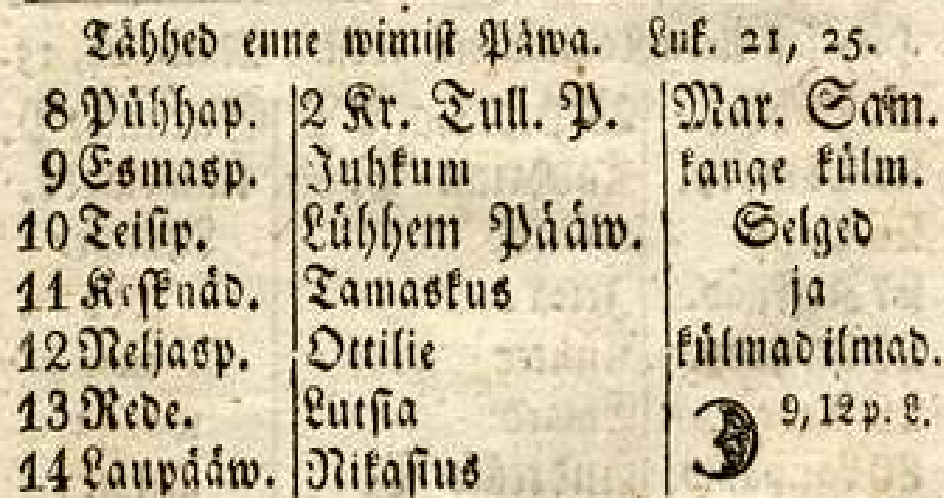 Tähhed enne wimist Päwa. Luk. 21, 25.
8 Pühhap. 2 Kr. Tull. P. Mar. Sam.
9 Esmasp. Juhkum kange külm.
10 Teisip. Lühhem Pääw. Selged
11 Kesknäd. Tamaskus ja
12 Neljasp. Ottilie külmad ilmad.
13 Rede. Lutsia 9, 12 p. L.
14 Laupääw. Nikasius